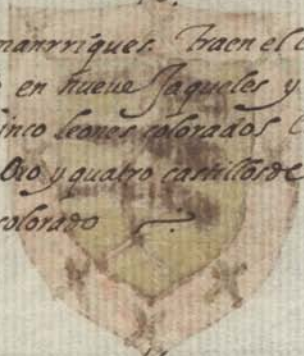 manrriques. Traen el
en nueve Jaqueles y
cinco leones colorados
Oro y quatro castillos de
colorado